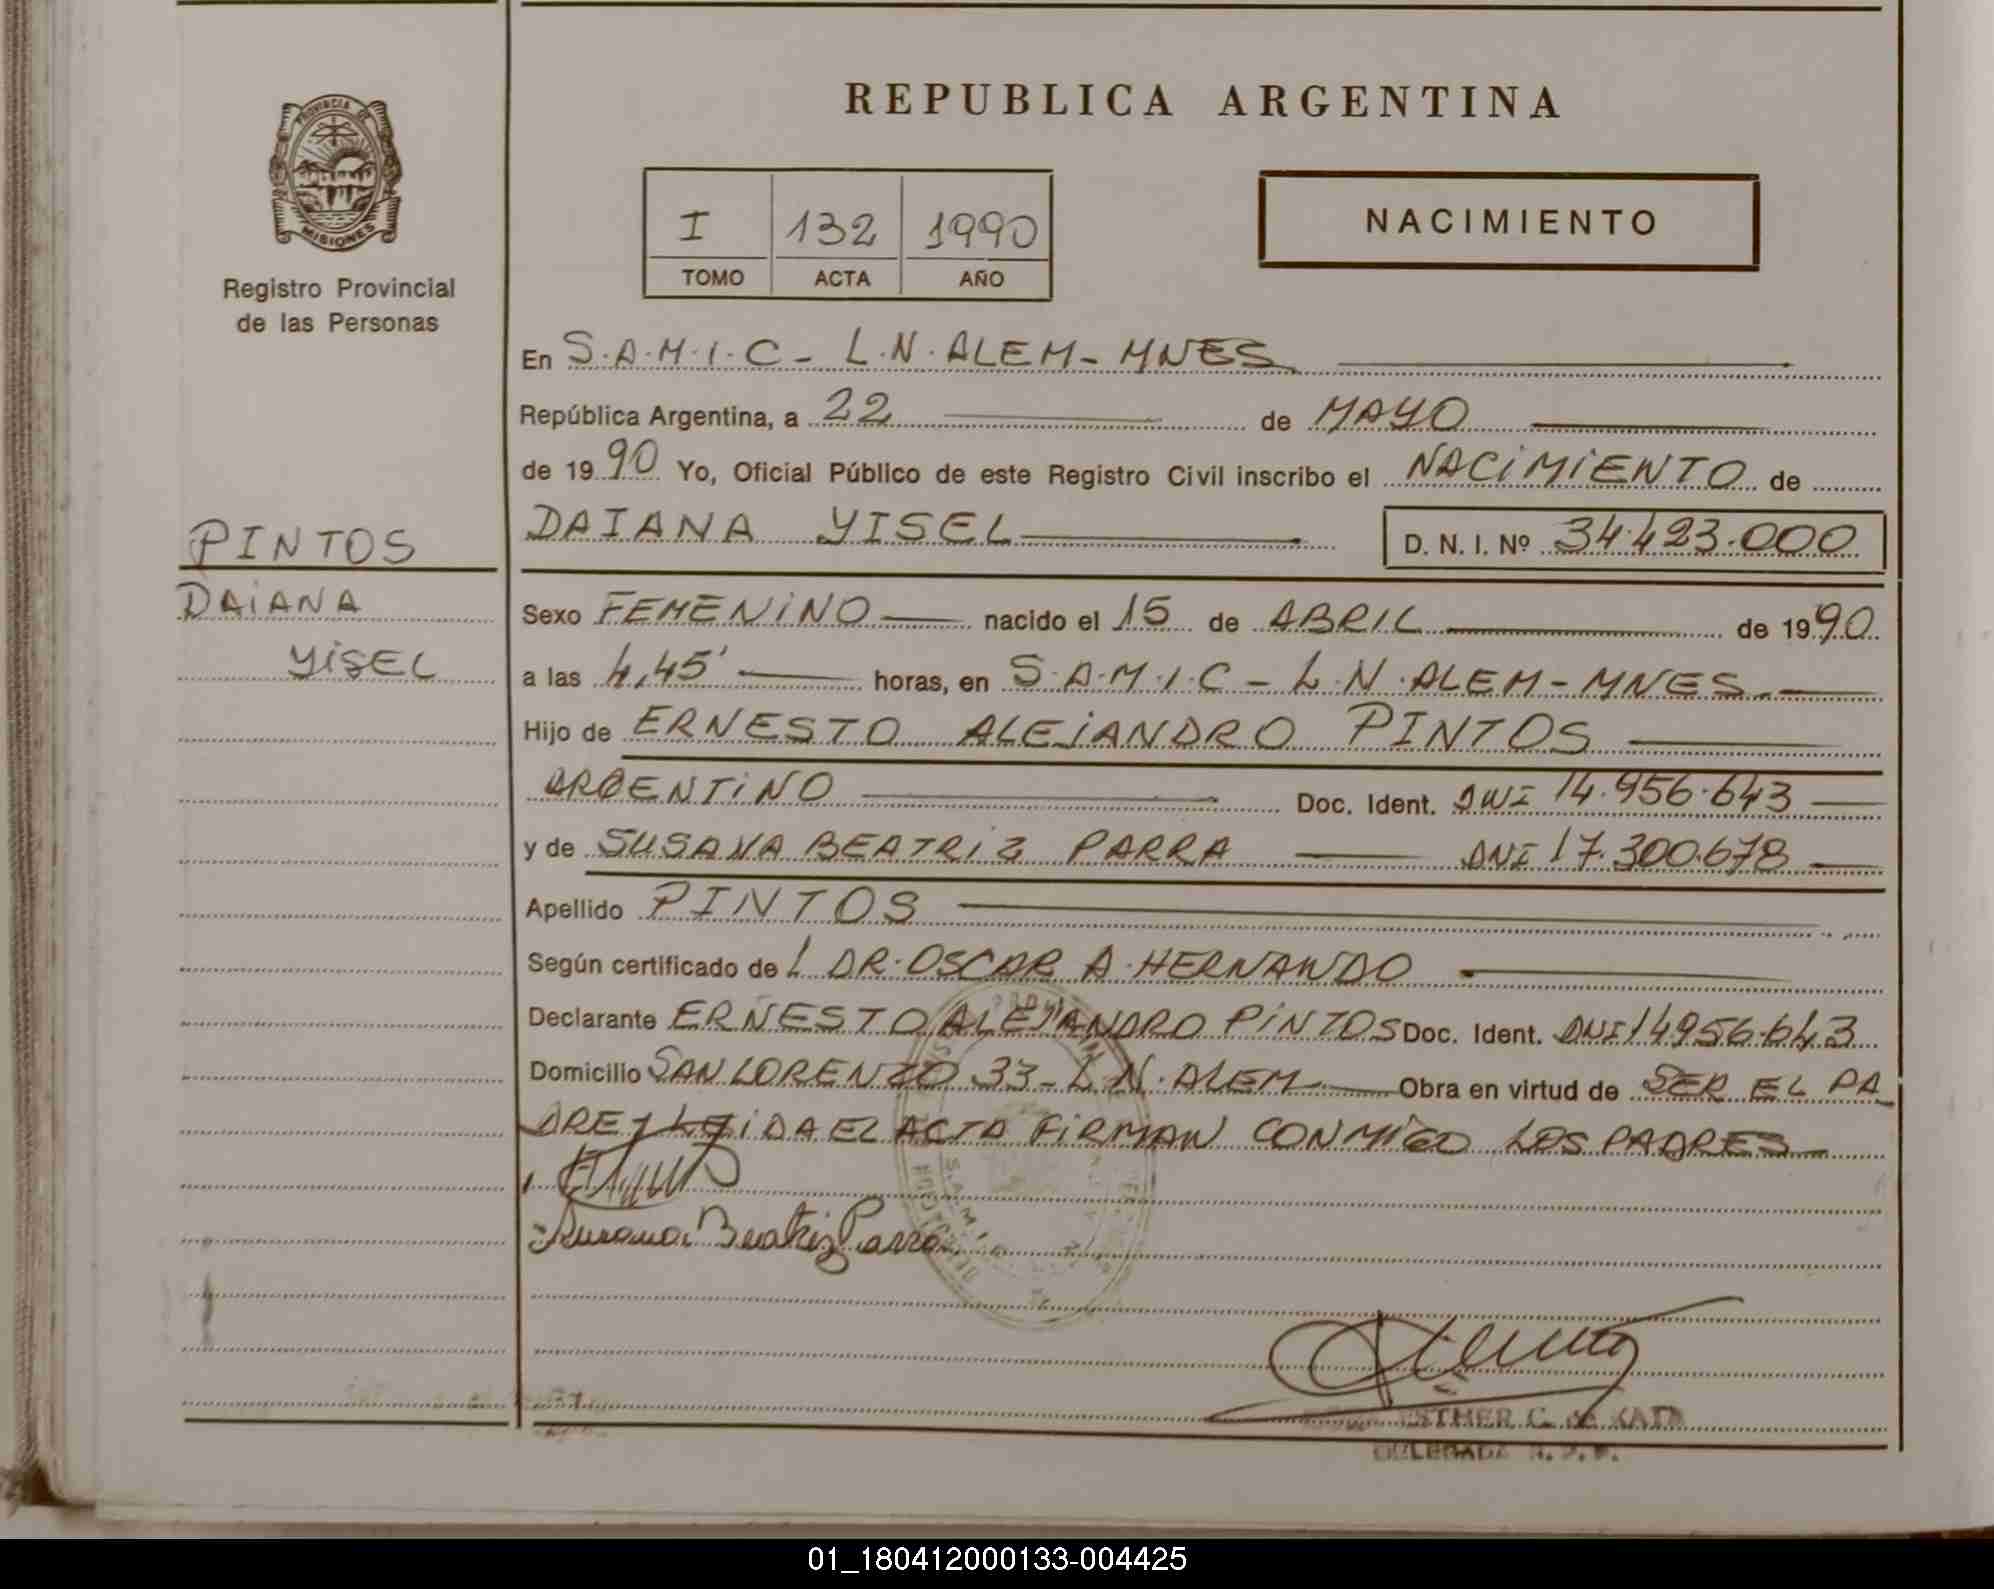 REPUBLICA ARGENTINA
PROVINCIA DE
MISIONES
Registro Provincial
de las Personas
I 132 1990
TOMO ACTA AÑO
NACIMIENTO
En S.A.M.I.C - L.N.ALEM - MNES
República Argentina, a 22 de MAYO
de 1990 Yo, Oficial Público de este Registro Civil inscribo el NACIMIENTO de
DAIANA YISEL D. N. I. Nº 34.423.000
PINTOS
DAIANA
YISEL
Sexo FEMENINO nacido el 15 de ABRIL de 1990
a las 4,45' horas, en S.A.M.I.C - L.N.ALEM - MNES.
Hijo de ERNESTO ALEJANDRO PINTOS
ARGENTINO Doc. Ident. DNI 14.956.643
y de SUSANA BEATRIZ PARRA DNI 17.300.678
Apellido PINTOS
Según certificado de L DR. OSCAR A. HERNANDO
Declarante ERNESTO ALEJANDRO PINTOS Doc. Ident. DNI 14956.643
Domicilio SAN LORENZO 33 - L.N.ALEM Obra en virtud de SER EL PA
DRE Y LEIDA EL ACTA FIRMAN CONMIGO LOS PADRES
Susana Beatriz Parra
ESTHER C. de KATZ
DELEGADA R. P. P.
01_180412000133-004425